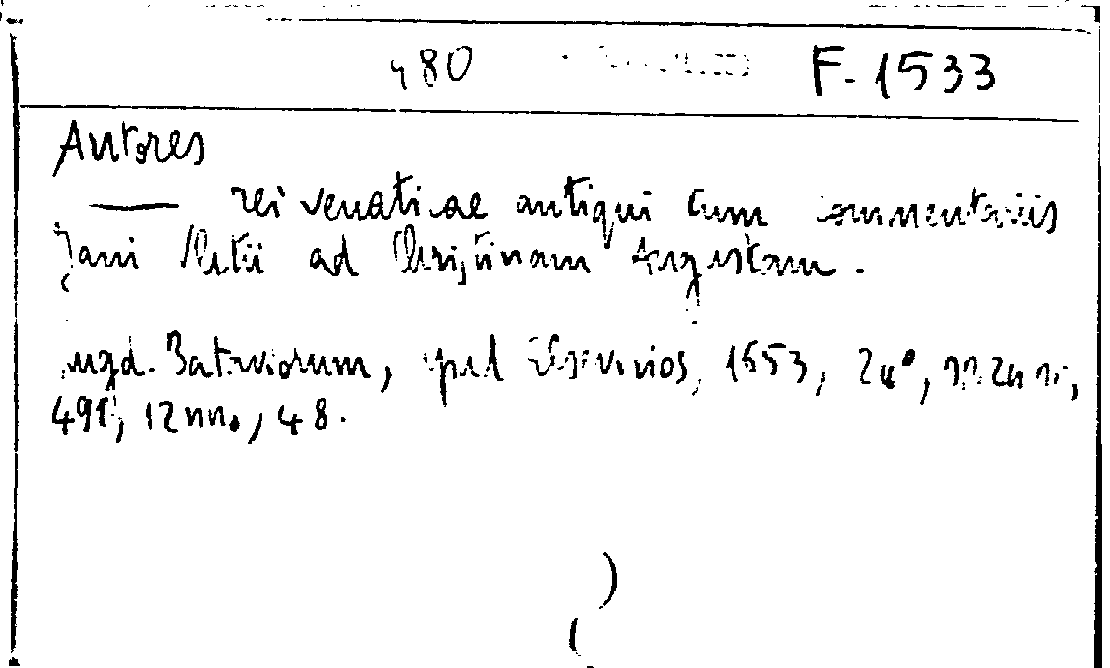 480 F-1533
Autores
— rei venaticae antiqui cum commentariis
Jani Vlitii ad Christinam Augustam.
Lugd. Batavorum, apud Elsevirios, 1653, 24°,
491, 12 nn., 48.